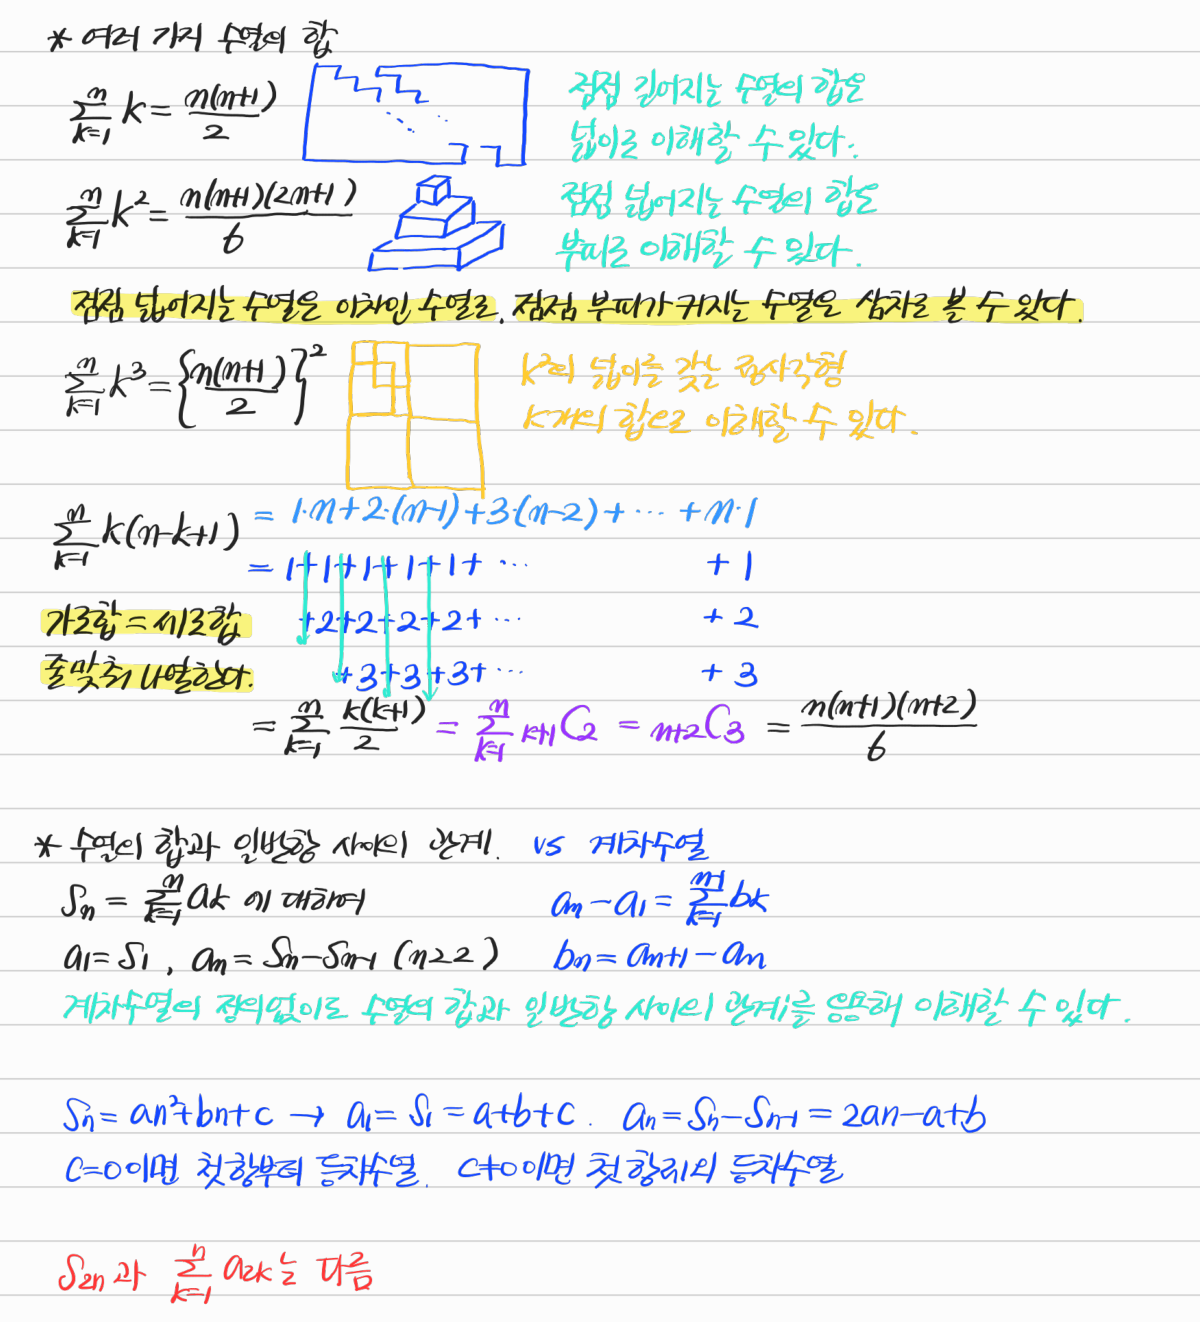 * 여러 가지 수열의 합
\sum_{k=1}^{n} k = \frac{n(n+1)}{2} 점점 길어지는 수열의 합은
넓이로 이해할 수 있다.
\sum_{k=1}^{n} k^2 = \frac{n(n+1)(2n+1)}{6} 점점 넓어지는 수열의 합은
부피로 이해할 수 있다.
점점 넓어지는 수열은 이차인 수열로, 점점 부피가 커지는 수열은 삼차로 볼 수 있다.
\sum_{k=1}^{n} k^3 = \left\{\frac{n(n+1)}{2}\right\}^2 k^2의 넓이를 갖는 정사각형
k개의 합으로 이해할 수 있다.
\sum_{k=1}^{n} k(n-k+1) = 1·n+2·(n-1)+3·(n-2)+ ··· +n·1
= 1+1+1+1+1+ ··· +1
가로합 = 세로합 +2+2+2+2+ ··· +2
줄맞춰 나열한다. +3+3+3+ ··· +3
= \sum_{k=1}^{n} \frac{k(k+1)}{2} = \sum_{k=1}^{n} {}_{k+1}C_2 = {}_{n+2}C_3 = \frac{n(n+1)(n+2)}{6}
* 수열의 합과 일반항 사이의 관계. vs 계차수열
S_n = \sum_{k=1}^{n} a_k 에 대하여 a_n - a_1 = \sum_{k=1}^{n-1} b_k
a_1 = S_1 , a_n = S_n - S_{n-1} (n≥2) b_n = a_{n+1} - a_n
계차수열의 정의없이도 수열의 합과 일반항 사이의 관계를 응용해 이해할 수 있다.
S_n = an^2+bn+c → a_1 = S_1 = a+b+c. a_n = S_n - S_{n-1} = 2an-a+b
c=0이면 첫항부터 등차수열. c≠0이면 첫항외의 등차수열
S_{2n}과 \sum_{k=1}^{n} a_{2k}는 다름